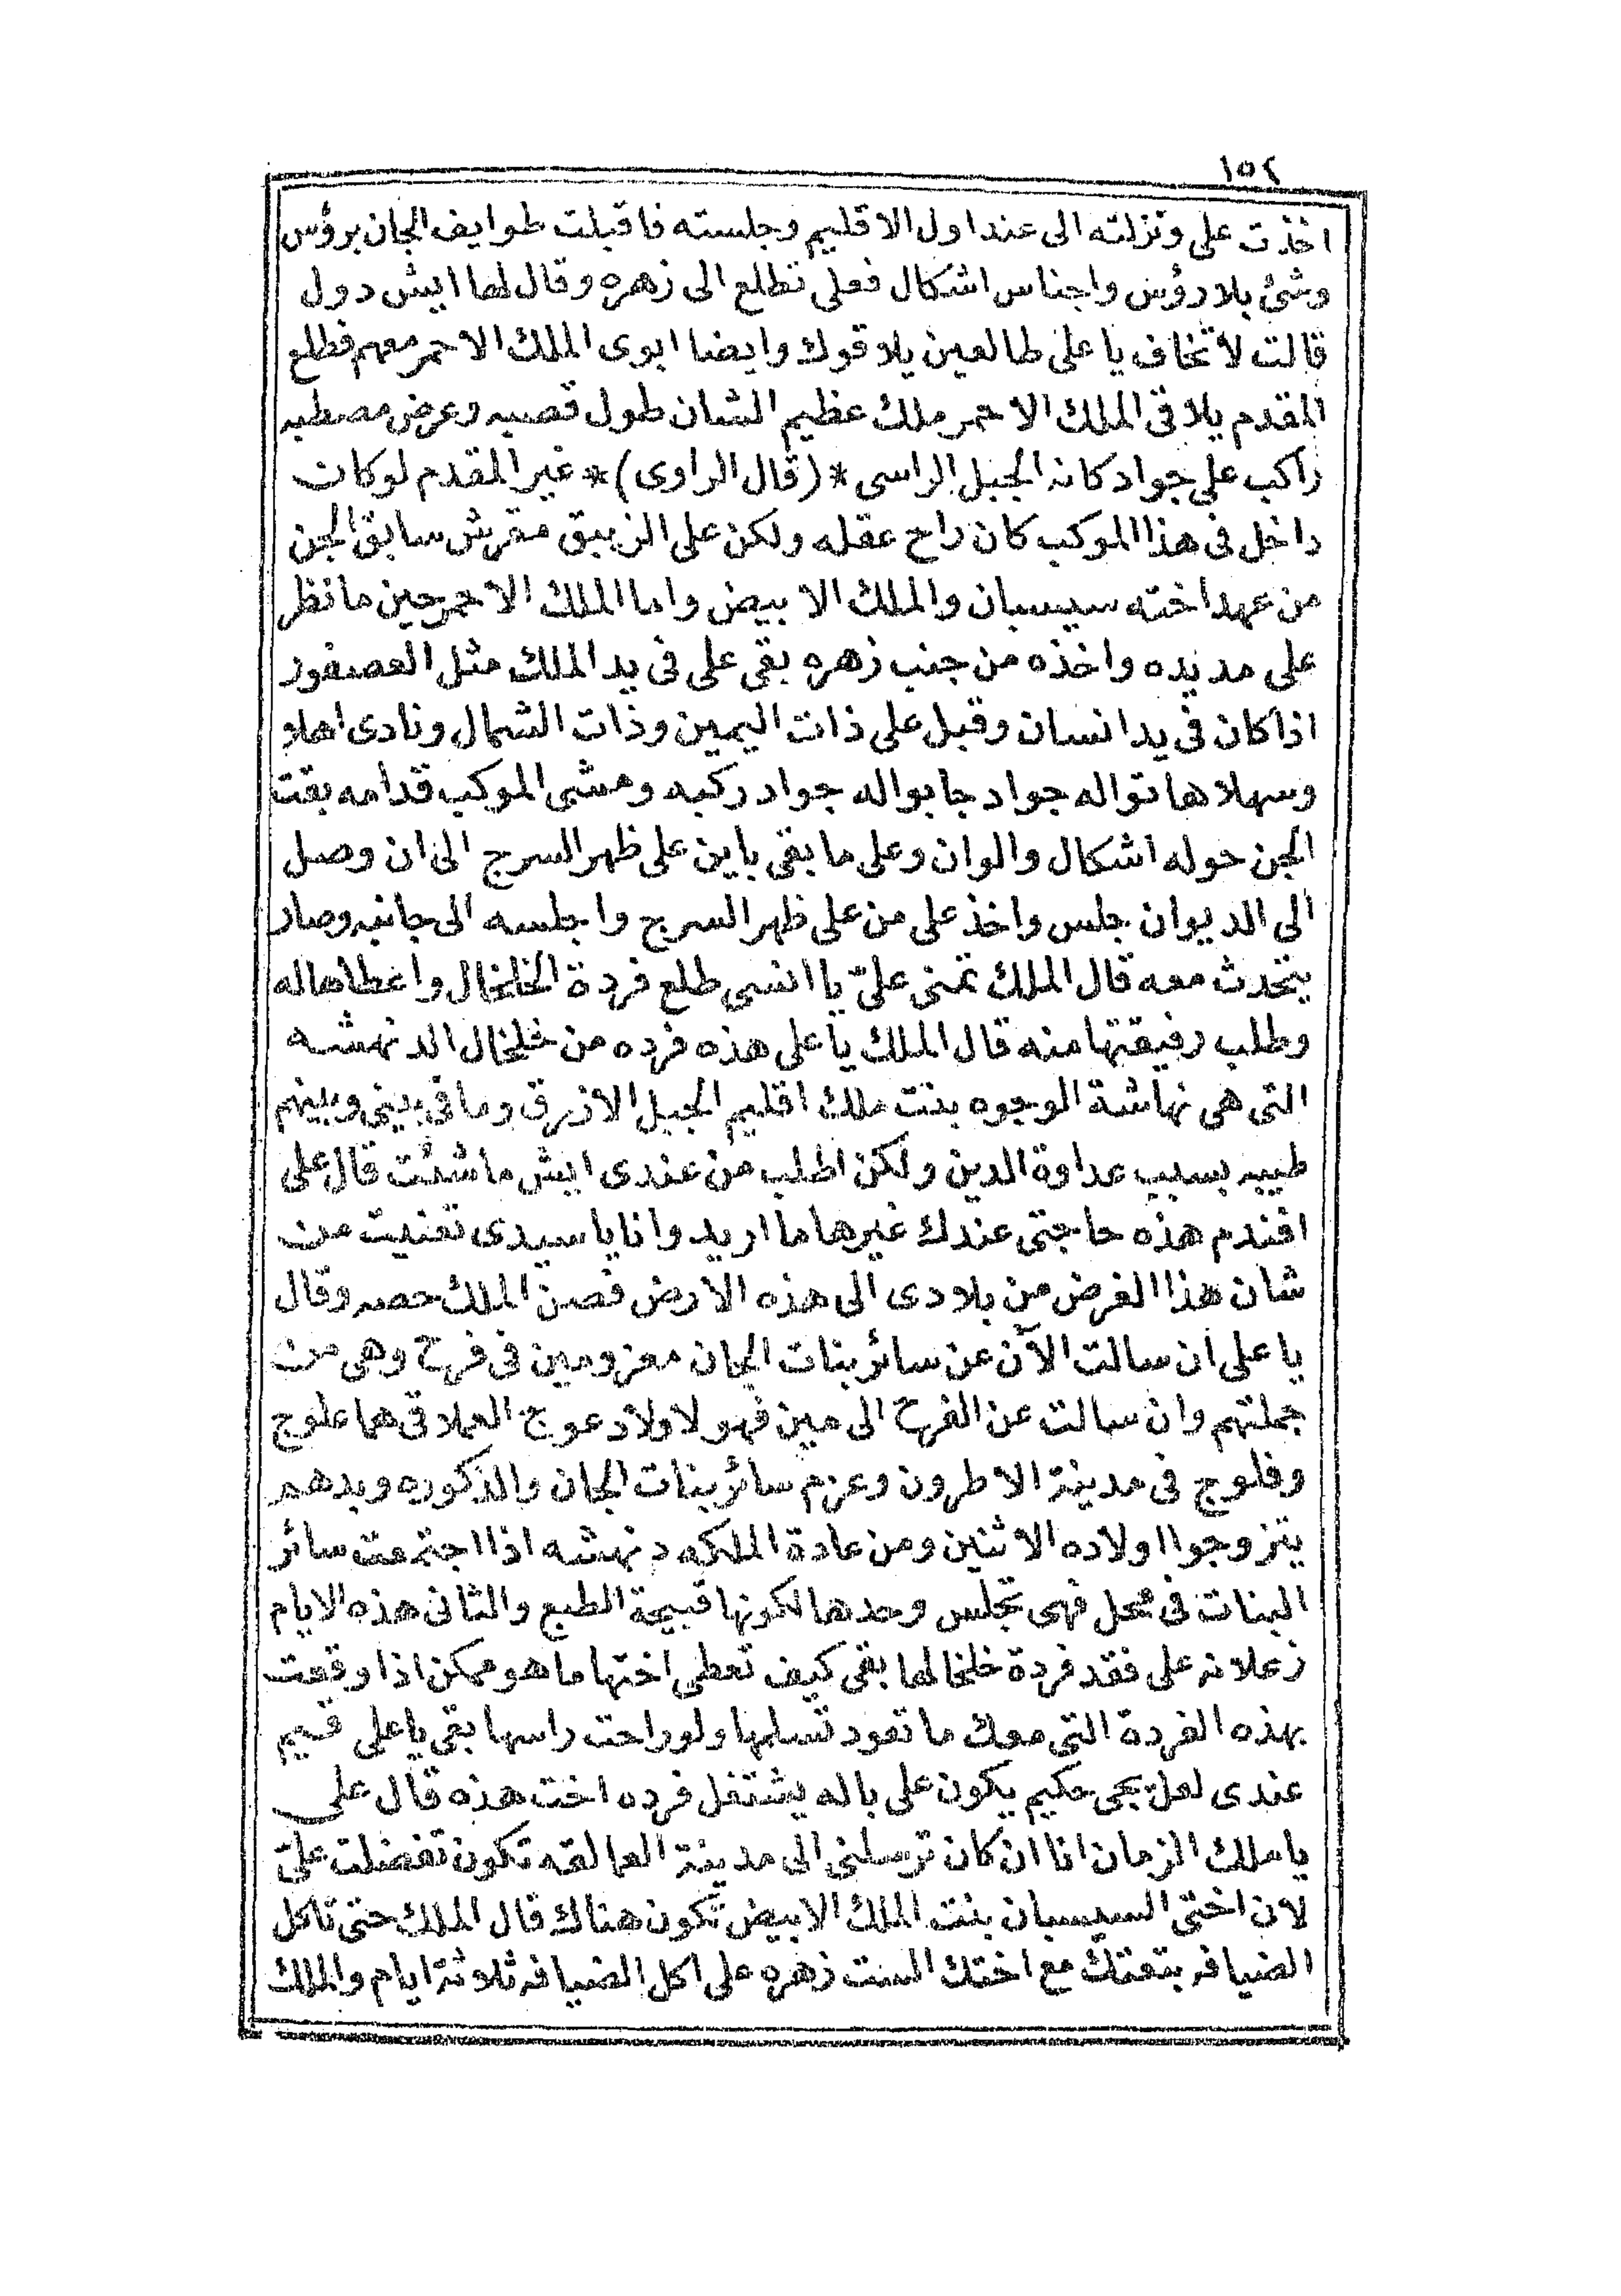 ١٥٢
اخذت على ونزلته الى عند اول الاقليم وجلسته فاقبلت طوايف الجان برؤس
وشئ بلا رؤس واجناس اشكال فعلى تطلع الى زهره وقال لها ايش دول
قالت لا تخاف يا على طالعين يلاقوك وايضا ابوى الملك الاحمر معهم فطلع
المقدم يلاقى الملك الاحمر ملك عظيم الشان طول قصبه وعرض مصطبه
راكب على جواد كانه الجبل الراسى * (قال الراوى) * غير المقدم لو كان
داخل فى هذا الموكب كان راح عقله ولكن على الزيبق مقرش سابق الجن
من عهد اخته سيسبان والملك الابيض واما الملك الاحمر حين ما نظر
على مد يده واخذه من جنب زهره بقى على فى يد الملك مثل العصفور
اذا كان فى يد انسان وقبل على ذات اليمين وذات الشمال ونادى اهلا
وسهلا هاتوا له جواد جابوا له جواد ركبه ومشى الموكب قدامه بقت
الجن حوله اشكال والوان وعلى ما بقى باين على ظهر السرج الى ان وصل
الى الديوان جلس واخذ على من على ظهر السرج واجلسه الى جانبه وصار
يتحدث معه قال الملك تمنى علىّ يا انسى طلع فردة الخلخال واعطاها له
وطلب رفيقتها منه قال الملك يا على هذه فرده من خلخال الدنهشه
التى هى نهاشة الوجوه بنت ملك اقليم الجبل الازرق وما فى بينى وبينهم
طيبه بسبب عداوة الدين ولكن اطلب من عندى ايش ما شئت قال على
افندم هذه حاجتى عندك غيرها ما اريد وانا يا سيدى تعنيت من
شان هذا الغرض من بلادى الى هذه الارض فصنّ الملك حصه وقال
يا على ان سالت الآن عن سائر بنات الجان معزومين فى فرح وهى من
جملتهم وان سالت عن الفرح الى مين فهو لاولاد عوج العملاقى هما علوج
وفلوج فى مدينة الاطرون وعزم سائر بنات الجان والذكوره وبدهم
يتزوجوا اولاده الاثنين ومن عادة الملكه دنهشه اذا اجتمعت سائر
البنات فى محل فهى تجلس وحدها لكونها قبيحة الطبع والثانى هذه الايام
زعلانه على فقد فردة خلخالها بقى كيف تعطى اختها ما هو ممكن اذا وقعت
بهذه الفردة التى معك ما تعود تسلمها ولو راحت راسها بقى يا على قيم
عندى لعل يجى حكيم يكون على باله يشتغل فرده اخت هذه قال على
يا ملك الزمان انا ان كان ترسلنى الى مدينة العمالقه تكون تفضلت علىّ
لان اختى السيسبان بنت الملك الابيض تكون هناك قال الملك حتى تاكل
الضيافه بتعتك مع اختك الست زهره على اكل الضيافه ثلاثة ايام والملك